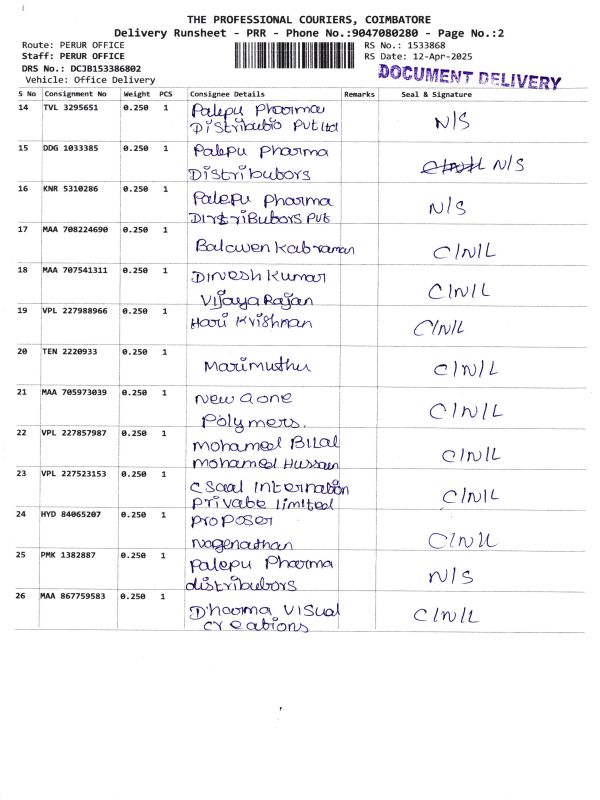 THE PROFESSIONAL COURIERS, COIMBATORE
Delivery Runsheet - PRR - Phone No.:9047080280 - Page No.:2
Route: PERUR OFFICE
Staff: PERUR OFFICE
DRS No.: DCJB153386802
Vehicle: Office Delivery
RS No.: 1533868
RS Date: 12-Apr-2025
DOCUMENT DELIVERY
S No Consignment No Weight PCS Consignee Details Remarks Seal & Signature
14 TVL 3295651 0.250 1 Palepu Pharma N/S
Distributio Pvt ltd
15 DDG 1033385 0.250 1 Palepu pharma N/S
Distributors
16 KNR 5310286 0.250 1 Palepu pharma N/S
Distributors Pvt
17 MAA 708224690 0.250 1 Balawenkabraman C/N/L
18 MAA 707541311 0.250 1 Dinesh kumar C/N/L
Vijaya Rajan
19 VPL 227988966 0.250 1 Hari Krishnan C/N/L
20 TEN 2220933 0.250 1 Marimuthu C/N/L
21 MAA 705973039 0.250 1 new a one C/N/L
Polymers.
22 VPL 227857987 0.250 1 mohamed Bilal C/N/L
mohamed Hussain
23 VPL 227523153 0.250 1 C Saal Internation C/N/L
private limited
24 HYD 84065207 0.250 1 proposer C/N/L
nagenathan
25 PMK 1382887 0.250 1 Palepu Pharma N/S
distributors
26 MAA 867759583 0.250 1 Dharma Visual C/N/L
Creations